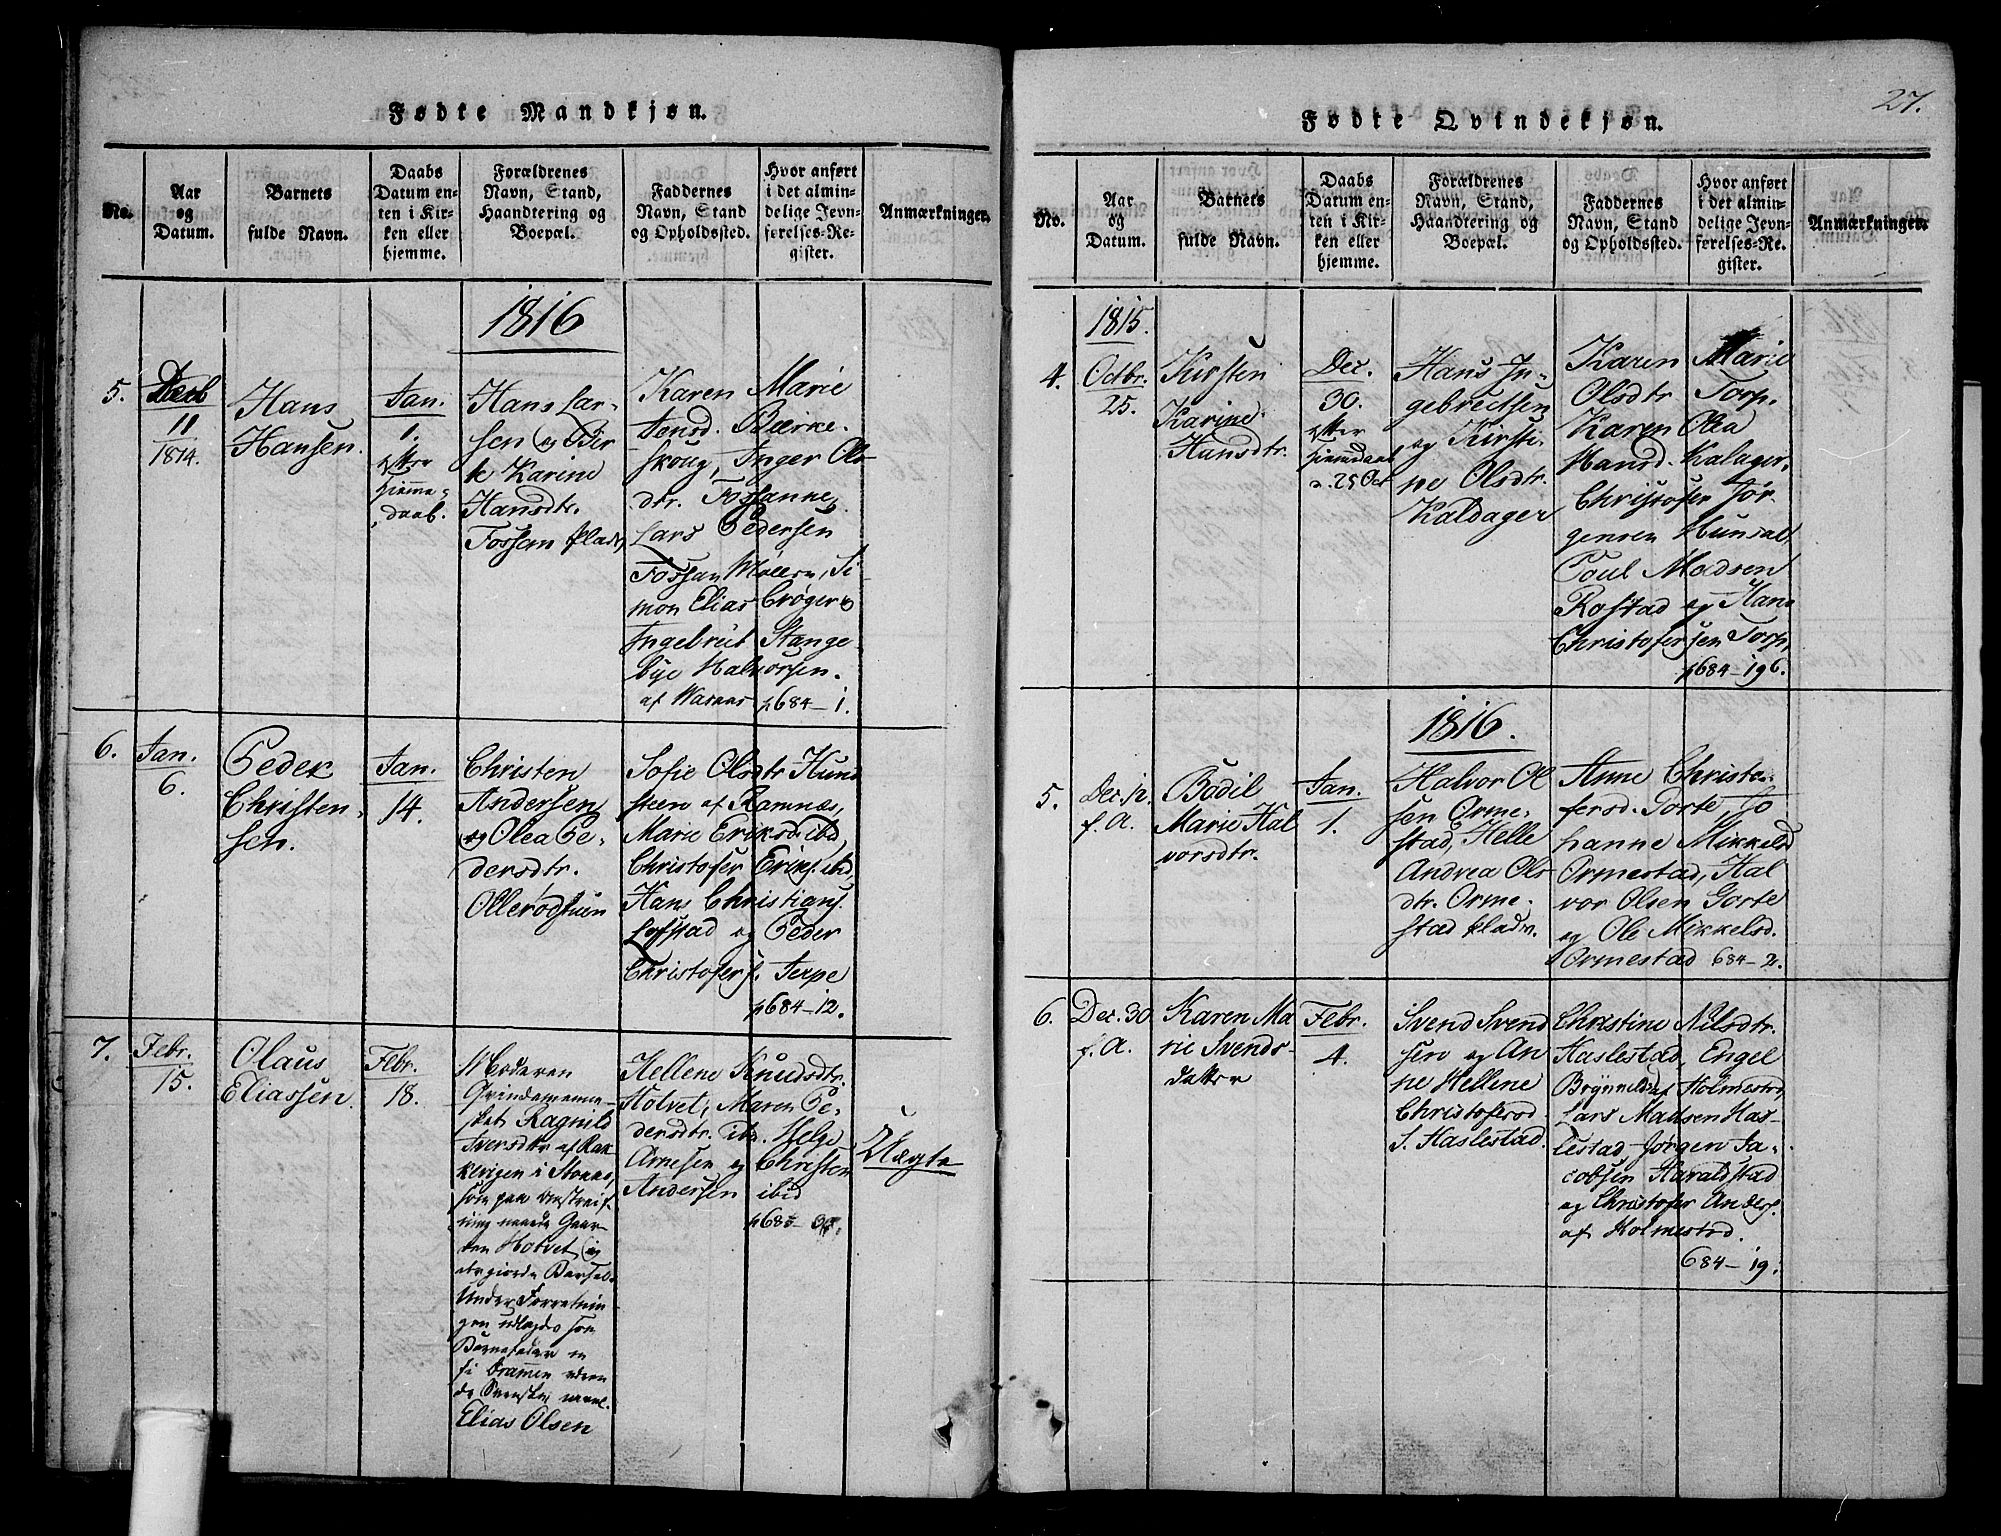 Fødte Mandkjøn.
No.
Aar
og
Datum.
Barnets
fulde Navn.
Daabs
Datum en-
ten i Kir-
ken eller
hjemme.
Forældrenes
Navn, Stand,
Haandtering og
Boepæl.
Faddernes
Navn, Stand
og Opholdssted.
Hvor anført
i det almin-
delige Jevn-
førelses-Re-
gister.
Anmærkninger.
1816
5.
Decb
11
1814.
Hans
Hansen.
Jan.
1.
efter
Hjemme-
daab.
Hans Lar-
sen og Bir
te Karine
Hansdtr.
Fossan pladn
Karen Marie
Jensd. Bærke-
skoug, Inger Ols
dtr. Fossanne,
Lars Pedersen
Fossan Møllen, Si-
mon Elias Crøger &
Ingebreit Stange-
bye Halvorsen.
af
p684-1.
6.
Jan.
6.
Peder
Christen-
sen.
Jan.
14.
Christen
Andersen
og Olea Pe-
dersdtr.
Ollerødstuen
Sofie Olsdtr Hund
steen af Ramnæs,
Marie Eriksd. ibd,
Christofer Eriks. ibd,
Hans Christians.
Lofstad og Peder
Christofers. Jerpe
p684-12.
7.
Febr.
15.
Olaus
Eliassen.
Febr.
18.
Moderen
Qvindemenne-
sket Ragnild
Iversdtr af Rak
kevigen i
som paa
ning naaede Gaar-
den Hotvet, og
der giorde Barsel.
Under Forretnin
gen udlagdes som
Barnefader en
fi
de Svenske, navnl.
Elias Olsen
Hellene Knudsdtr.
Hotvet, Maren Pe-
dersdtr. ibd. Helge
Arnesen og Christen
Andersen ibid
Uægte
Fødte Qvindekjøn.
27.
No.
Aar
og
Datum.
Barnets
fulde Navn.
Daabs
Datum en-
ten i Kir-
ken eller
hjemme.
Forældrenes
Navn, Stand,
Haandtering og
Boepæl.
Faddernes
Navn, Stand
og Opholdssted.
Hvor anført
i det almin-
delige Jevn-
førelses-Re-
gister.
Anmærkninger.
1815.
4.
Octbr.
25.
Kirsten
Karine
Hansdtr.
Dec.
30.
efter
Hjemmdaab
d. 25 Oct
Hans In-
gebreitsen
og Kirsti-
ne Olsdtr.
Kaldager
Karen Marie
Olsdtr Torp.
Karen Olea
Hansd. Kalager,
Christofer Jør
gensen Hunsal,
Poul Madsen
Rostad og Hans
Christofersen Torp,
p684-196.
1816.
5.
Dec. 12.
f. A.
Bodil
Marie Hal
vorsdtr.
Jan.
1.
Halvor Ol
sen Orme-
stad, Helle
Andrea Ols
dtr. Orme-
stad pladn.
Anne Christo-
fersd. Gorte, Jo
hanne Mikkelsd
Ormestad, Hal
vor Olsen Gorte
og Ole Mikkelsd.
Ormestad 684-2.
6.
Dec. 30
f. A.
Karen Ma
rie Svends-
datter
Febr.
4.
Svend Svend
sen og An
ne Hellene
Christofersd.
S. Haslestad.
Christine Nilsdtr.
Haslestad, Engel
Brynnildsd af Holmestad,
Lars Madsen Has-
lestad Jørgen Ja-
cobsen Haraldstad
og Christofer Anders.
af Holmestad.
684-19.